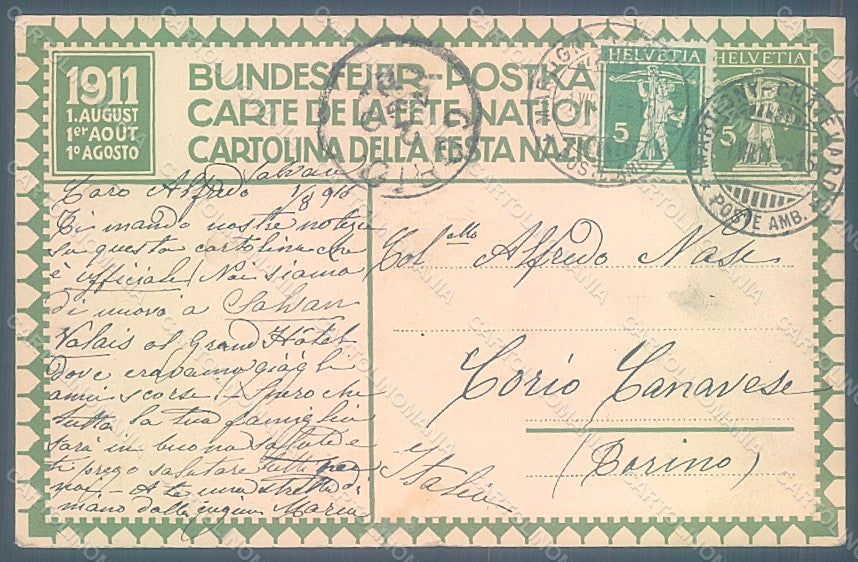 1911
1. AUGUST
1er AOÛT
1º AGOSTO
BUNDESFEIER-POSTKA
CARTE DE LA FÊTE NATION
CARTOLINA DELLA FESTA NAZION
HELVETIA
5
HELVETIA
5
MARTIGNY
MARTIGNY-CHATELARD
POSTE AMB.
Salvan
Caro Alfredo 1/8 916
Ti mando nostre notizie
su questa cartolina che
è ufficiale. Noi siamo
di nuovo a Salvan
Valais al Grand Hôtel
dove eravamo già gli
anni scorsi. Spero che
tutta la tua famiglia
sarà in buona salute e
ti prego salutare tutti per
noi – A te una stretta di
mano dalla cugina Maria
Col.ello Alfredo Nasi
Corio Canavese
(Torino)
Italia